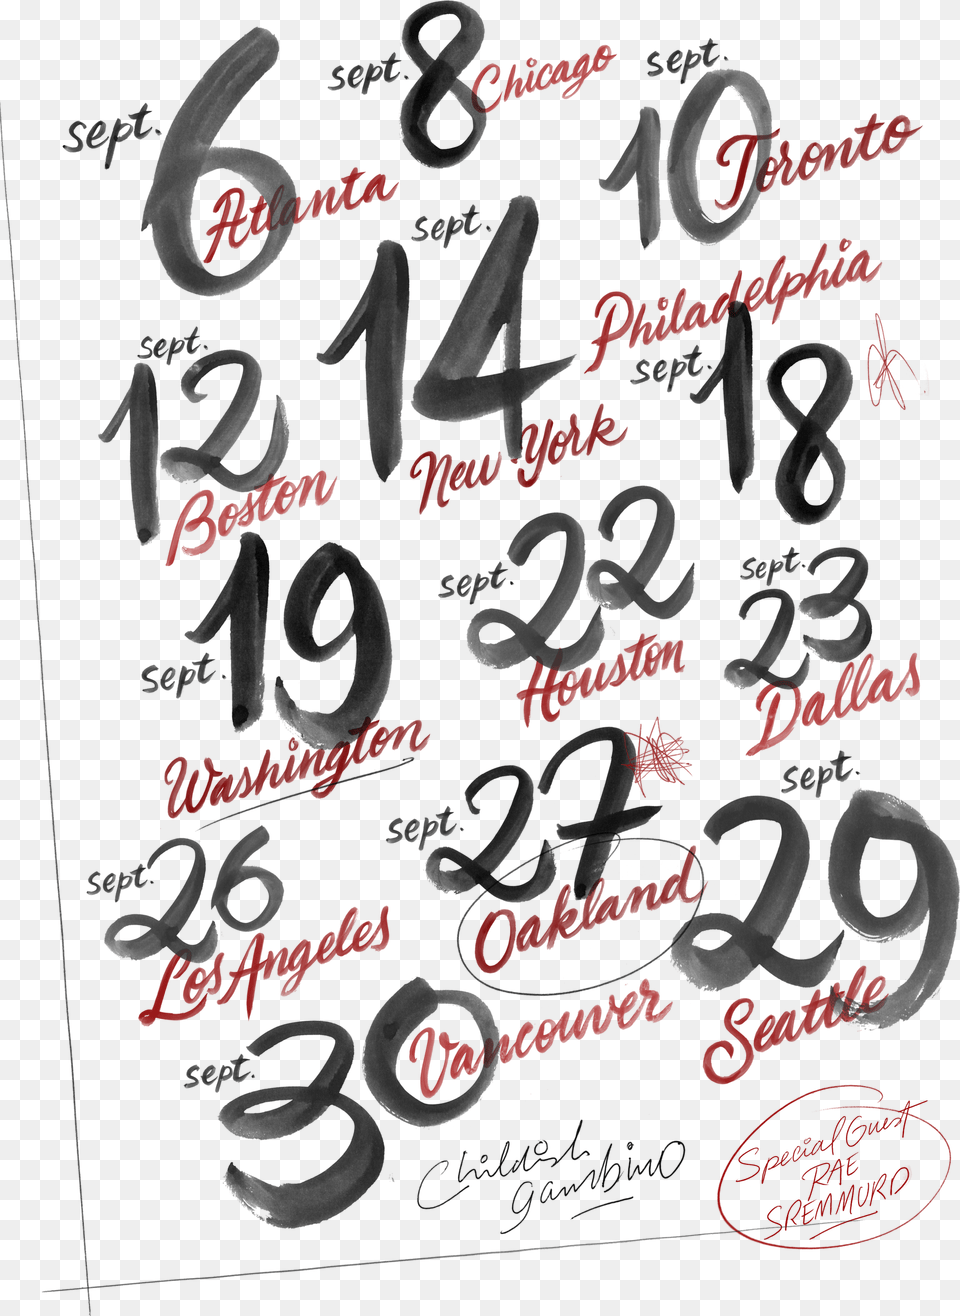 sept. 6 Atlanta
sept. 8 Chicago
sept. 10 Toronto
sept. 12 Boston
sept. 14 New York
Philadelphia
sept. 18
sept. 19 Washington
sept. 22 Houston
sept. 23 Dallas
sept. 26 Los Angeles
sept. 27 Oakland
sept. 29 Seattle
sept. 30 Vancouver
Childish
gambino
Special Guest
RAE
SREMMURD